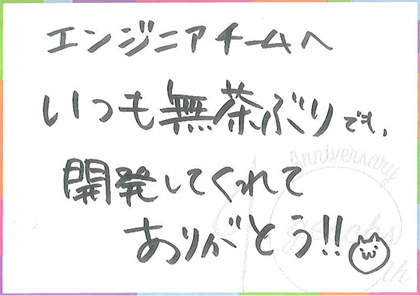 エンジニアチームへ
いつも無茶ぶりでも、
開発してくれて
ありがとう!!
Anniversary
th